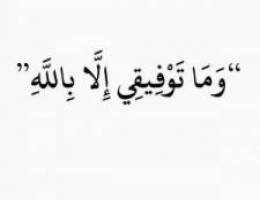 “وَمَا تَوْفِيقِي إِلَّا بِاللَّهِ”